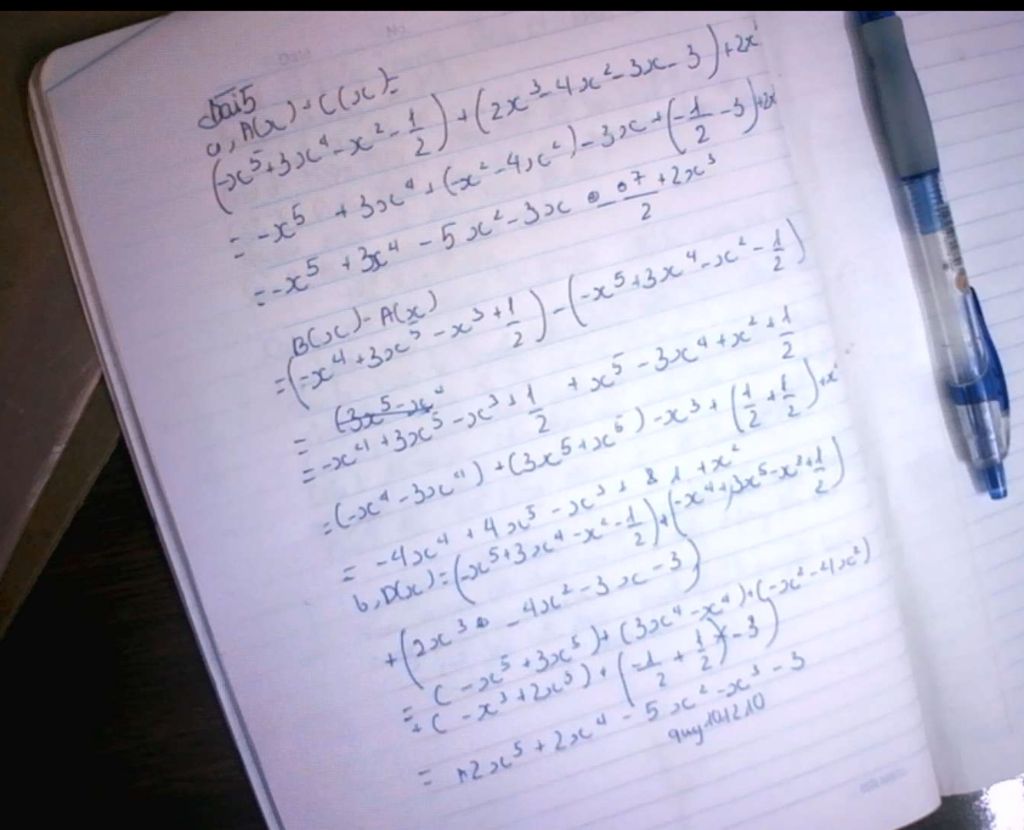 Bài 5
a, A(x) + C(x) =
(-x⁵ + 3x⁴ - x² - 1/2) + (2x³ - 4x² - 3x - 3) + 2x³
= -x⁵ + 3x⁴ + (-x² - 4x²) - 3x + (-1/2 - 3) + 2x³
= -x⁵ + 3x⁴ - 5x² - 3x - 7/2 + 2x³
B(x) - A(x)
= (-x⁴ + 3x⁵ - x³ + 1/2) - (-x⁵ + 3x⁴ - x² - 1/2)
= (3x⁵ - x⁴
= -x⁴ + 3x⁵ - x³ + 1/2 + x⁵ - 3x⁴ + x² + 1/2
= (-x⁴ - 3x⁴) + (3x⁵ + x⁵) - x³ + (1/2 + 1/2) + x²
= -4x⁴ + 4x⁵ - x³ + 1 + x²
b, D(x) = (-x⁵ + 3x⁴ - x² - 1/2) + (-x⁴ + 3x⁵ - x³ + 1/2)
+ (2x³ - 4x² - 3x - 3)
= (-x⁵ + 3x⁵) + (3x⁴ - x⁴) + (-x² - 4x²)
+ (-x³ + 2x³) + (-1/2 + 1/2 - 3)
= 2x⁵ + 2x⁴ - 5x² - x³ - 3
quy101210